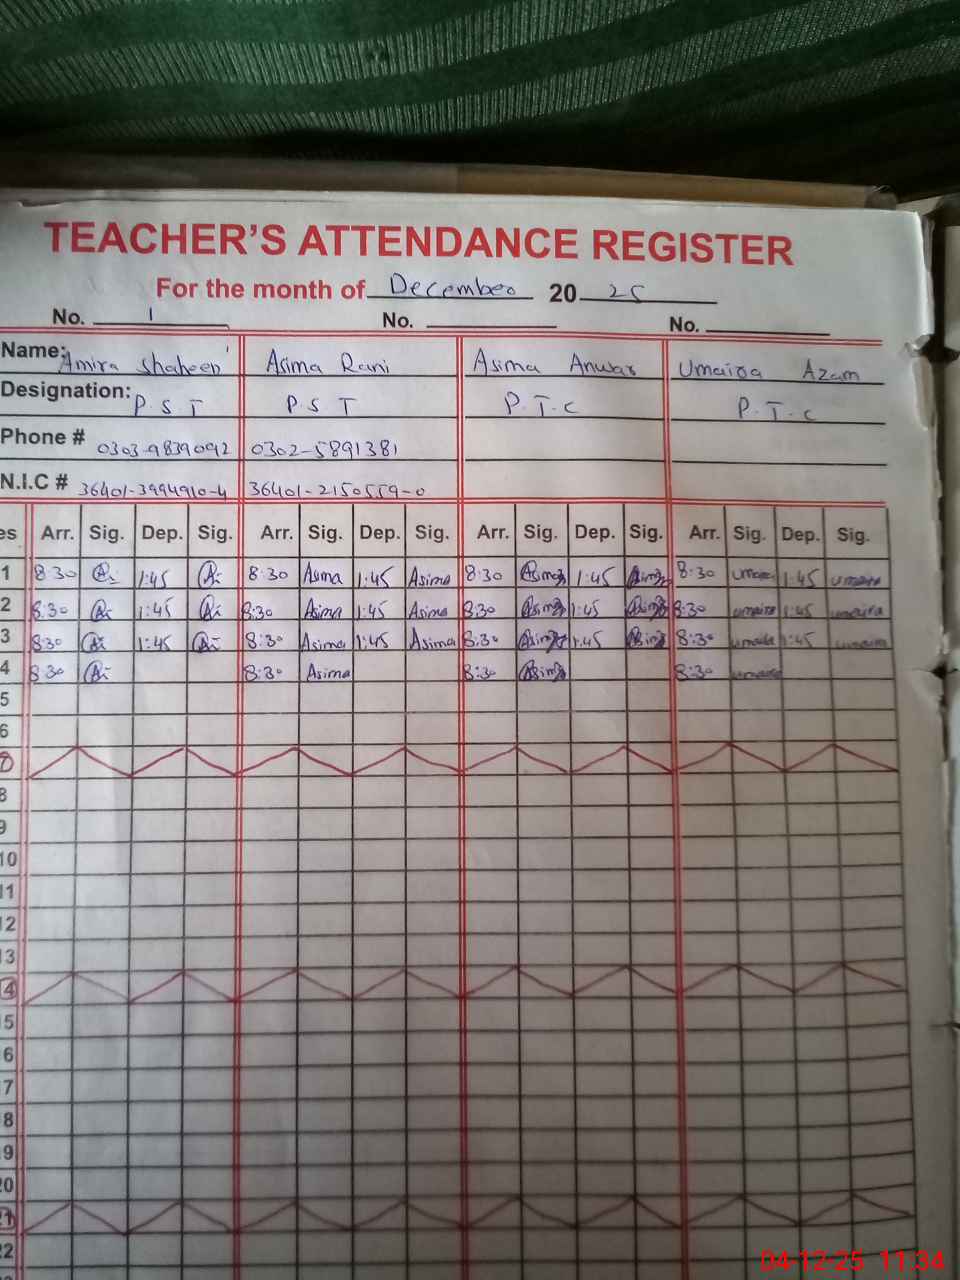 TEACHER'S ATTENDANCE REGISTER
For the month of December 20 25
No. 1 No. No.
Name: Amira Shaheen Asima Rani Asima Anwar Umaira Azam
Designation: P.S T P.S T P.T.C P.T.C
Phone # 0303-9839092 0302-5891381
N.I.C # 36401-3994910-4 36401-2150559-0
es Arr. Sig. Dep. Sig. Arr. Sig. Dep. Sig. Arr. Sig. Dep. Sig. Arr. Sig. Dep. Sig.
1 8:30 1:45 8:30 Asima 1:45 Asima 8:30 1:45 8:30 umaira 1:45 umaira
2 8:30 1:45 8:30 Asima 1:45 Asima 8:30 1:45 8:30 umaira 1:45 umaira
3 8:30 1:45 8:30 Asima 1:45 Asima 8:30 1:45 8:30 umaira 1:45 umaira
4 8:30 8:30 Asima 8:30 8:30 umaira
5
6
7
8
9
10
11
12
13
4
15
6
7
8
9
20
21
22
04-12-25 11:34